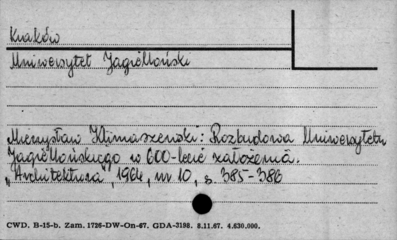 Kraków
Uniwersytet Jagielloński
Mieczysław Klimaszewski: Rozbudowa Uniwersytetu
Jagiellońskiego w 600-lecie założenia.
"Architektura", 1964, nr 10, s. 385-386
CWD. B-15-b. Zam. 1726-DW-On-67. GDA-3198. 8.11.67. 4.630.000.